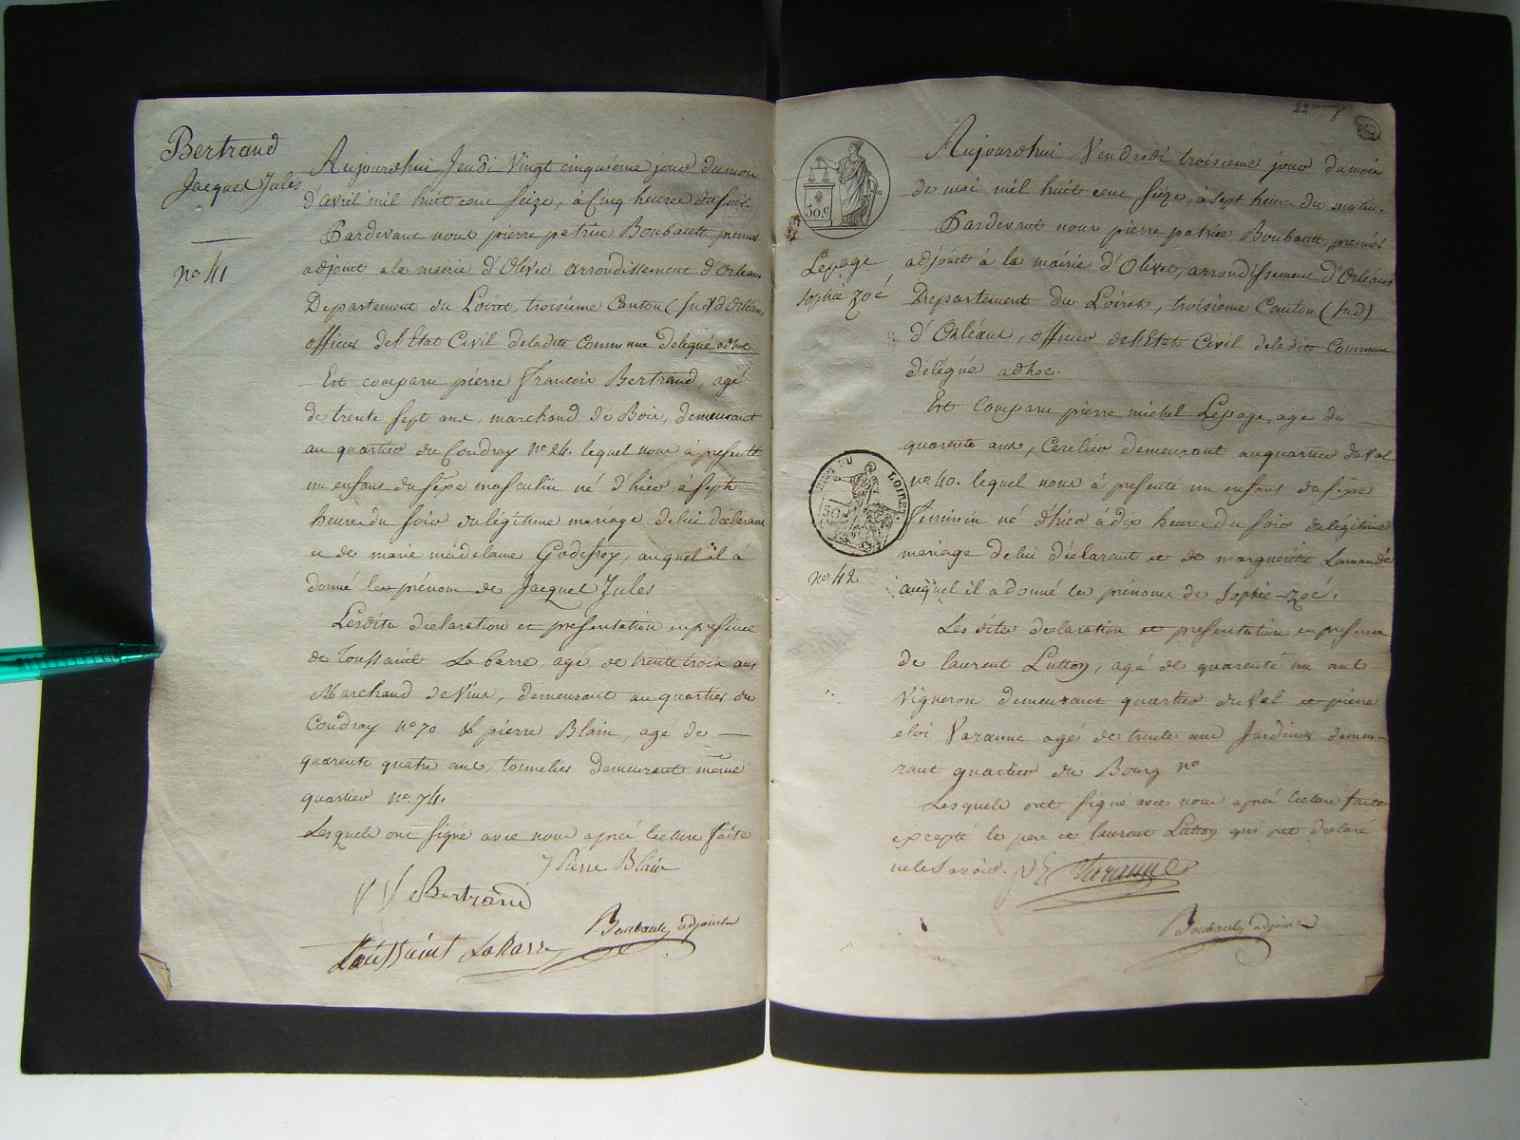 Bertrand
Jacques Jules
no 41
Aujourdhui Jeudi Vingt cinquième jour du mois
d'avril mil huit cent seize, à Cinq heures du soir
Pardevant nous pierre patrice Boubault premier
adjoint a la mairie d'Olivet arrondissement d'Orléans
Département du Loiret, troisième Canton (sud) d'Orléans
officier de l'Etat Civil de ladite Commune délégué adhoc
Est comparu pierre François Bertrand, agé
de trente sept ans, marchand de Bois, demeurant
au quartier du Coudray no 24. lequel nous à présenté
un enfant du sexe masculin né d'hier à sept
heures du soir du légitime mariage de lui déclarant
et de marie madelaine Godefroy, auquel il a
donné les prénoms de Jacques Jules
Lesdites déclaration et présentation en présence
de Toussaint Labarre agé de trente trois ans
Marchand de Vins, demeurant au quartier du
Coudray no 70 & pierre Blain, agé de
quarente quatre ans, tonnelier demeurant même
quartier no. 74.
Lesquels ont signé avec nous après lecture faite
Pierre Blain
Bertrand
Boubault adjoint
Toussaint Labarre
22
50 c
Lepage
sophie zoé
LOIRET
no 42
Aujourdhui Vendredi troisième jour du mois
de mai mil huit cent seize, à sept heures du matin.
Pardevant nous pierre patrice Boubault premier
adjoint à la mairie d'Olivet, arrondissement d'Orléans
Département du Loiret, troisième Canton (sud)
d'Orléans, officier de l'Etat Civil de ladite Commune
délégué adhoc.
Est Comparu pierre michel Lépage, agé de
quarente ans, Cerclier demeurant au quartier du Val
no 40. lequel nous à présenté un enfant du sexe
féminin né d'hier à dix heures du soir du légitime
mariage de lui déclarant et de marguerite
auquel il a donné les prénoms de Sophie-zoé.
Les dites déclaration et présentation en présence
de laurent Lutton, agé de quarente un ans
Vigneron demeurant quartier du Val et pierre
eloi Varanne agé de trente ans Jardinier demeu-
rant quartier du Bourg no
Lesquels ont signé avec nous après lecture faite
excepté le père et laurent Lutton qui ont déclaré
ne le savoir. P E Varanne
Boubault adjoint